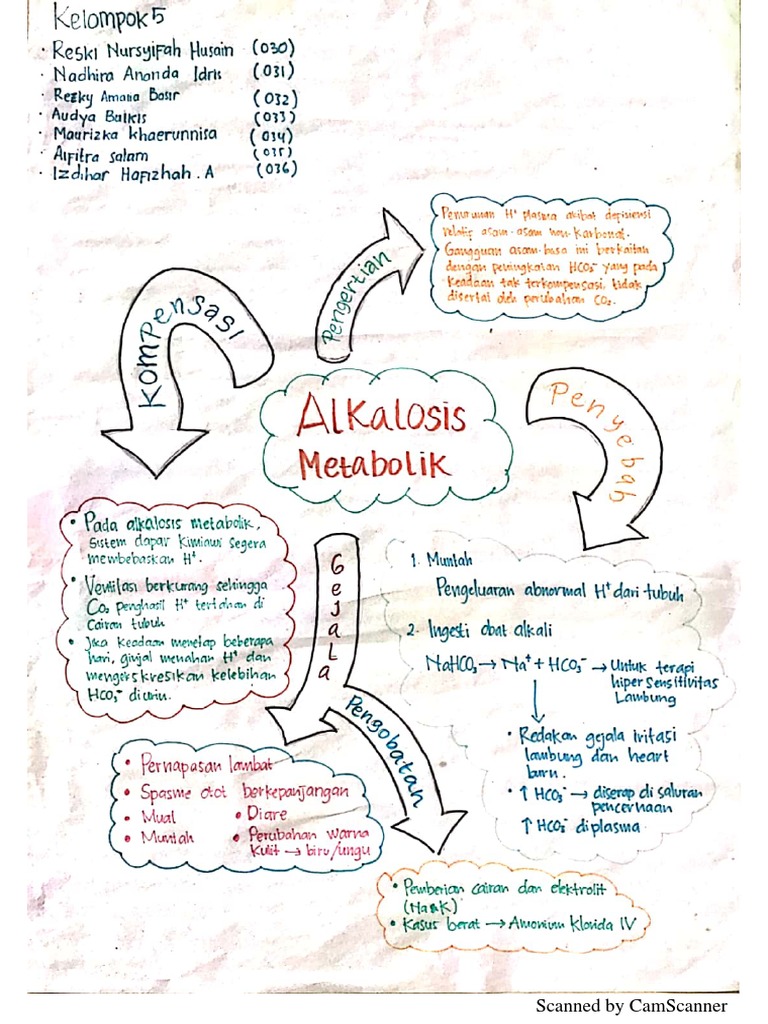 Kelompok 5
• Reski Nursyifah Husain (030)
• Nadhira Ananda Idris (031)
• Rezky Amalia Basir (032)
• Audya Balkis (033)
• Maurizka Khaerunnisa (034)
• Alfitra Salam (035)
• Izdihar Hafizhah . A (036)
Pengertian
Penurunan H⁺ plasma akibat defisiensi
relatif asam-asam non-karbonat.
Gangguan asam-basa ini berkaitan
dengan peningkatan HCO₃⁻ yang pada
keadaan tak terkompensasi, tidak
disertai oleh perubahan CO₂.
Kompensasi
Alkalosis
Metabolik
Penyebab
• Pada alkalosis metabolik,
Sistem dapar kimiawi segera
membebaskan H⁺.
• Ventilasi berkurang sehingga
CO₂ penghasil H⁺ tertahan di
Cairan tubuh
• Jika keadaan menetap beberapa
hari, ginjal menahan H⁺ dan
mengekskresikan kelebihan
HCO₃⁻ diurin.
Gejala
1. Muntah
Pengeluaran abnormal H⁺ dari tubuh
2. Ingesti obat alkali
NaHCO₃ → Na⁺ + HCO₃⁻ → Untuk terapi
hipersensitivitas
Lambung
↓
• Redakan gejala iritasi
lambung dan heart
burn.
• ↑ HCO₃⁻ → diserap di saluran
pencernaan
↑ HCO₃⁻ diplasma.
Pengobatan
• Pernapasan lambat
• Spasme otot berkepanjangan
• Mual • Diare
• Muntah • Perubahan warna
Kulit → biru/ungu
• Pemberian cairan dan elektrolit
(Na & K)
• Kasus berat → Amonium Klorida IV
Scanned by CamScanner